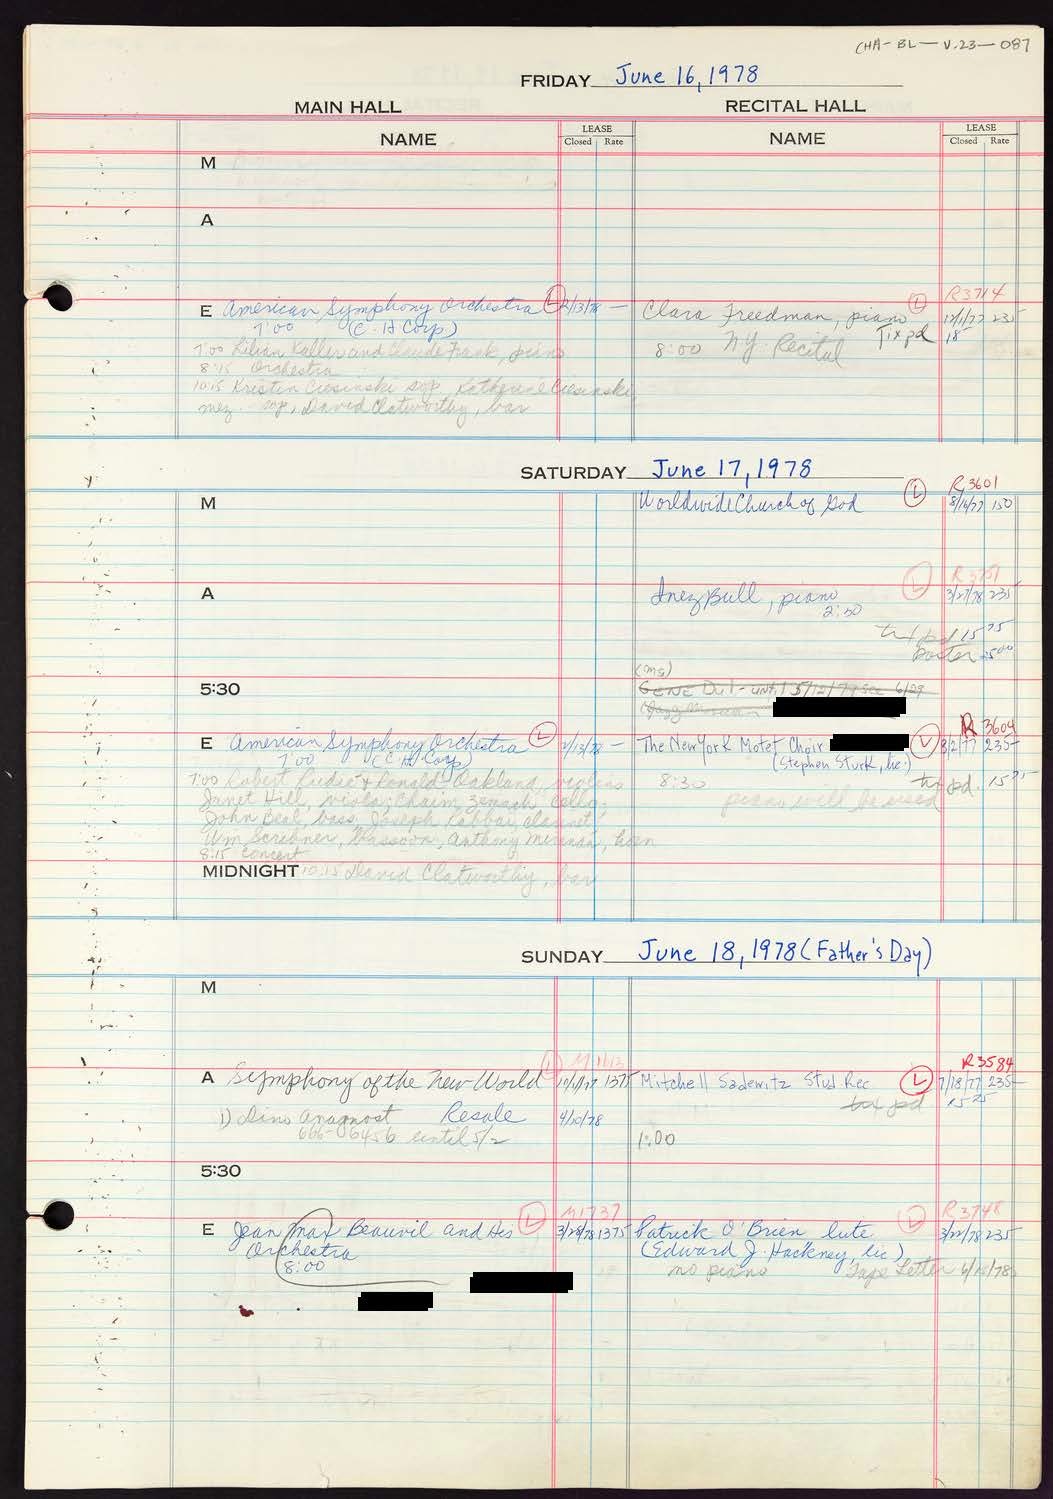 CHA-BL-V.23-087
FRIDAY June 16, 1978
MAIN HALL
RECITAL HALL
NAME
LEASE
Closed Rate
NAME
LEASE
Closed Rate
M
A
E American Symphony Orchestra L 2/13/78 —
7:00 (C.H Corp)
7:00 Lilian Kallir and Claude Frank, piano
8:15 Orchestra
10:15 Kristin Ciesinski sop, Katherine Ciesinski,
mez. sop, David Clatworthy, bar
R3714
Clara Freedman, piano L 12/1/77 235
Tix pd 18
8:00 NY. Recital
SATURDAY June 17, 1978
M
R3601
Worldwide Church of God L 8/16/77 150
A
Inez Bull, piano L 3/27/78 235
2:30
txt pd 15 75
Poster 25 00
5:30
(ms)
GENE Dul - until 5/12/78 see 6/29
E American Symphony Orchestra L 2/13/78 —
7:00 (C H Corp)
7:00 Robert Rudie & Ronald Oakland, violins
Janet Hill, viola, Chaim Zemach cello,
John Beal, bass, Joseph Rabbai, clarinet,
Wm Scribner, bassoon, Anthony Miranda, horn
8:15 Concert
R 3604
The New York Motet Choir L 3/2/77 235
(Stephen Sturk, lic.)
8:30 txt pd. 15 75
piano will be used
MIDNIGHT 10:15 David Clatworthy, bar
SUNDAY June 18, 1978 (Father's Day)
M
M1613
A Symphony of the New World L 10/11/77 1375
1) Dino Anagnost Resale 4/20/78
666-06456 until 5/2
R3584
Mitchell Sadewitz Stud Rec L 7/18/77 235
txt pd 15 75
1:00
5:30
M1737
E Jean Max Beauvil and His L 3/28/78 1375
Orchestra
8:00
R3748
Patrick O'Brien lute L 3/22/78 235
(Edward J. Hackney, lic)
no piano Tape Letter 6/15/78